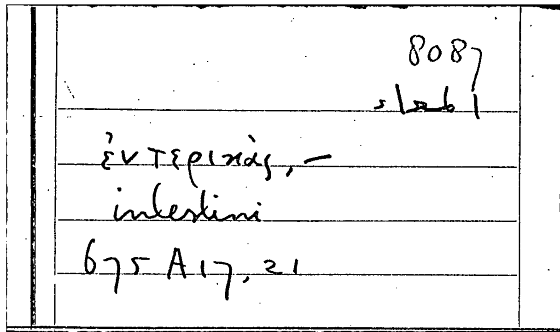 8087
امعاء
ἐντερικὰς, –
intestini
675 A 17, 21